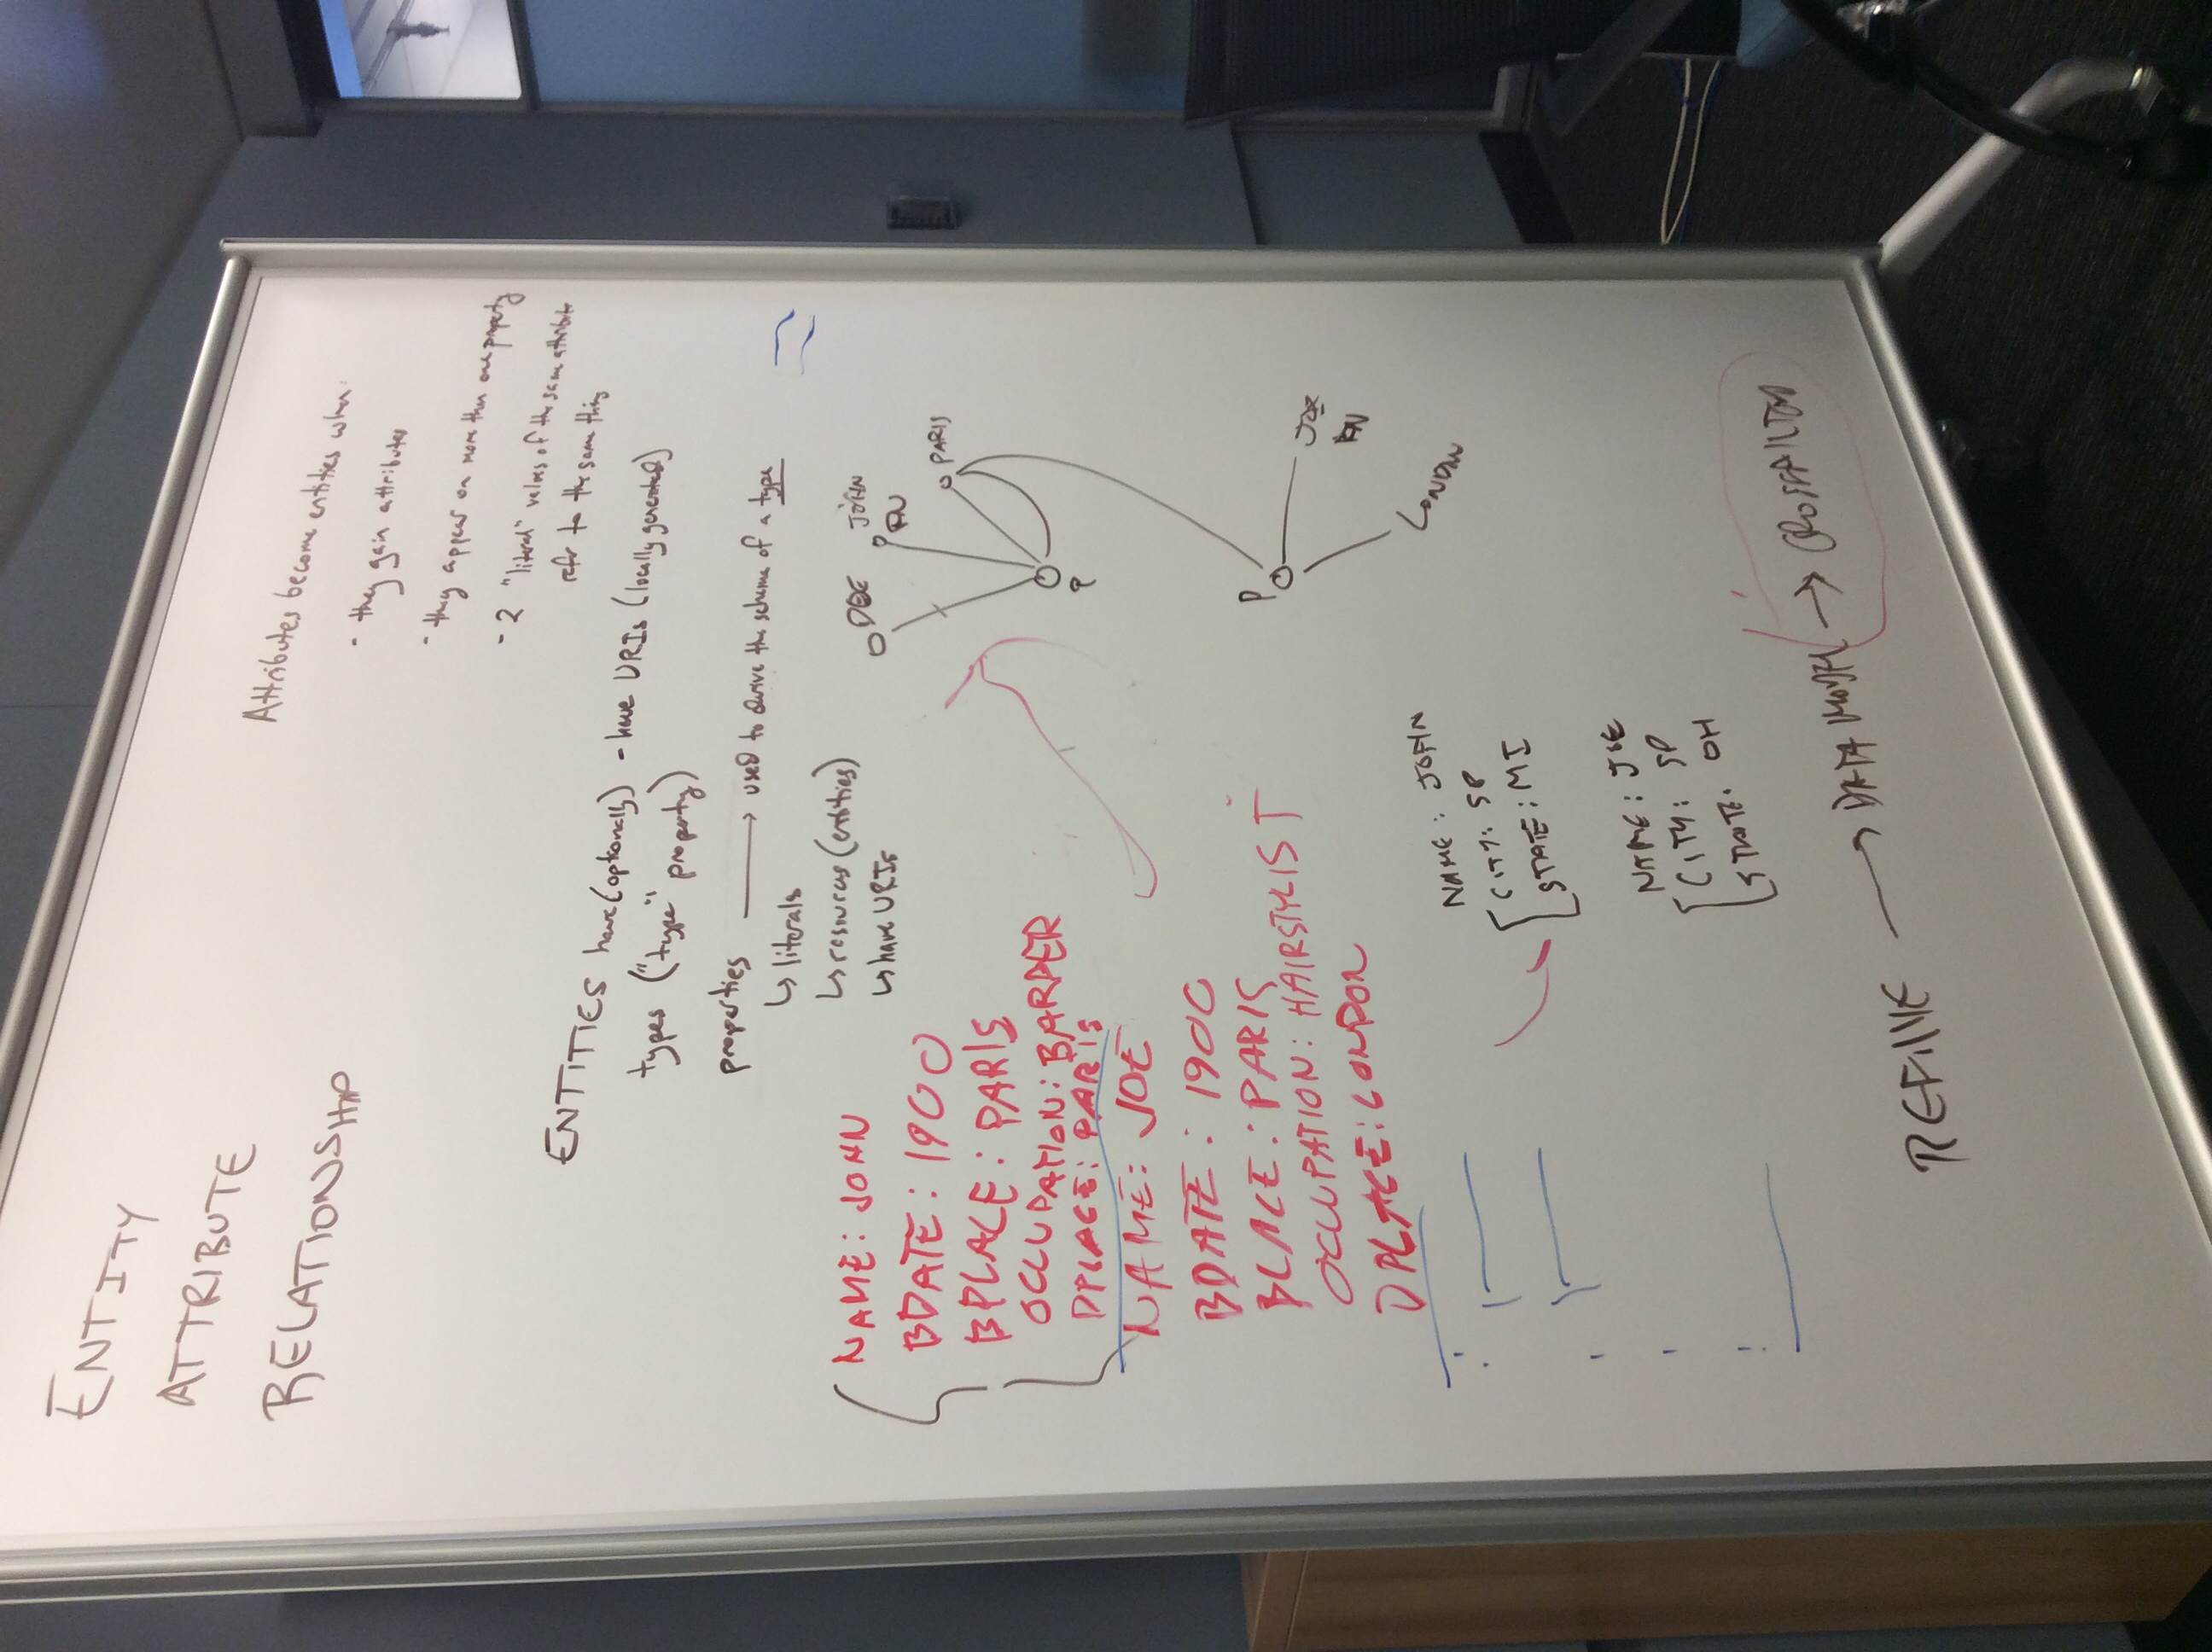 ENTITY
ATTRIBUTE
RELATIONSHIP
Attributes become entities when:
- they gain attributes
- they appear on more than one property
- 2 "literal" values of the same attribute
refer to the same thing
ENTITIES have (optionally) - have URIs (locally generated)
types ("type" property)
properties → used to derive the schema of a type
↳ literals
↳ resources (entities)
↳ have URIs
NAME: JOHN
BDATE: 1900
BPLACE: PARIS
OCCUPATION: BARBER
DPLACE: PARIS
NAME: JOE
BDATE: 1900
BLACE: PARIS
OCCUPATION: HAIRSTYLIST
DPLACE: LONDON
DOE
JOHN
PARIS
P
P
JOE
LONDON
NAME: JOHN
CITY: SP
STATE: MI
NAME: JOE
CITY: SP
STATE: OH
REFINE → DATA MODEL →